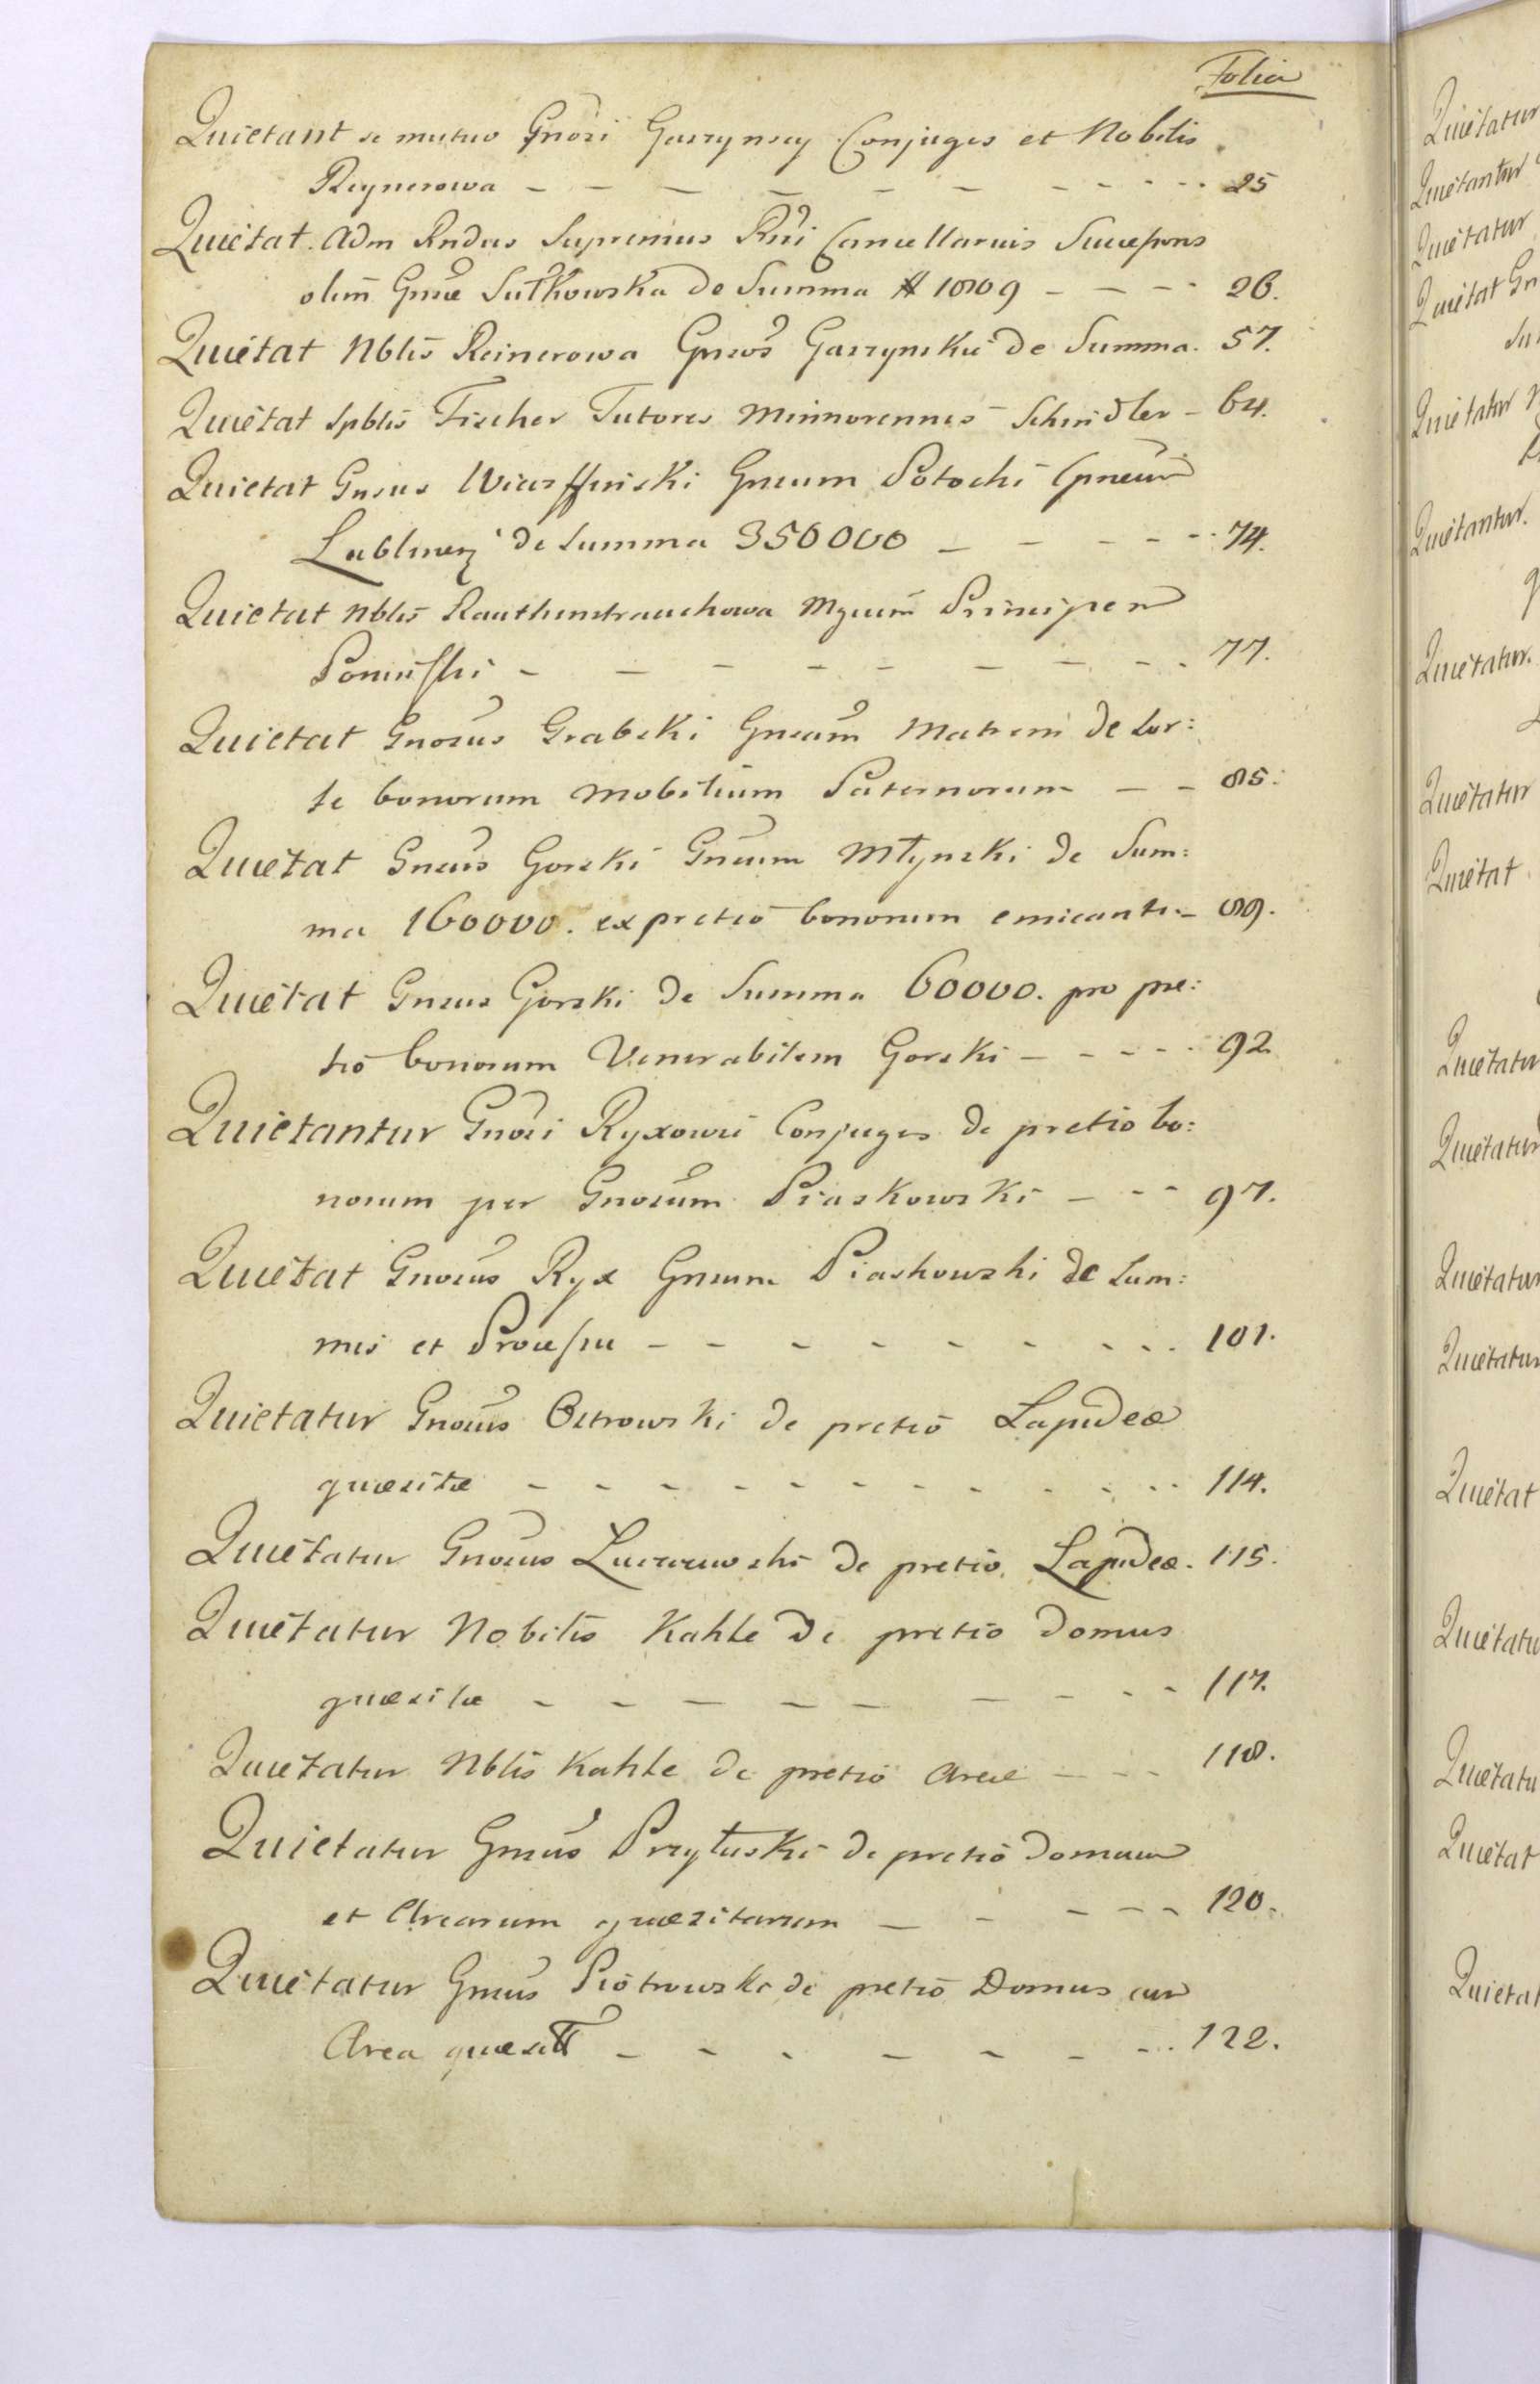 Folia
Quietant se mutuo Gnõsi Garzynscy Conjuges et Nobilis
Reynerowa - - - - - - - - - - 25
Quietat Adm Rndus Supremus Rni Cancellarius Successons
olim Gnsæ Sułkowska de Summa # 10809 - - - - 26.
Quietat Nblis Reinerowa Gnsos Garzynskie de Summa. 57.
Quietat Spblis Fischer Tutores Minnorennes Schindler - 64.
Quietat Gnsus Gnsum Potocki Cpneum
de Summa 350000 - - - - - 74.
Quietat Nblis Rauthenstrauchowa Principem
Poninski - - - - - - - - - 77.
Quietat Gnosus Grabski Gnsam Matrem de Sor:
te bonorum mobilium Paternorum - - 85.
Quietat Gnsus Gorski Gnsum Młynski de Sum:
ma 160000. ex pretio bonorum emicante - 89.
Quietat Gnsus Gorski de Summa 60000. pro pre:
tio bonorum Venerabilem Gorski - - - - - 92
Quietantur Gnosi Ryxowie Conjuges de pretio bo:
norum per Gnosum Piaskowski - - - 97.
Quietat Gnosus Ryx Gnsum Piaskowski de Sum:
mis et Processu - - - - - - - - - 101.
Quietatur Gnosus Ostrowski de pretio Lapideæ
quæsitæ - - - - - - - - - - - - 114.
Quietatur Gnosus de pretio Lapideæ. 115.
Quietatur Nobilis Kahle de pretio Domus
quæsitæ - - - - - - - - - 117.
Quietatur Nblis Kahle de pretio Areæ - - - 118.
Quietatur Gnsus Przyłuski de pretio Domuum
et Arearum quæsitarum - - - - - 120.
Quietatur Gnsus Piotrowski de pretio Domus cum
Area - - - - - - - - 122.
Quietatur
Quietantur
Quietatur
Quietat Gn
Quietatur
Quietantur.
Quietatur.
Quietatur
Quietat
Quietatur
Quietatur
Quietatur
Quietatur
Quietat
Quietatu
Quietatu
Quietat
Quietat